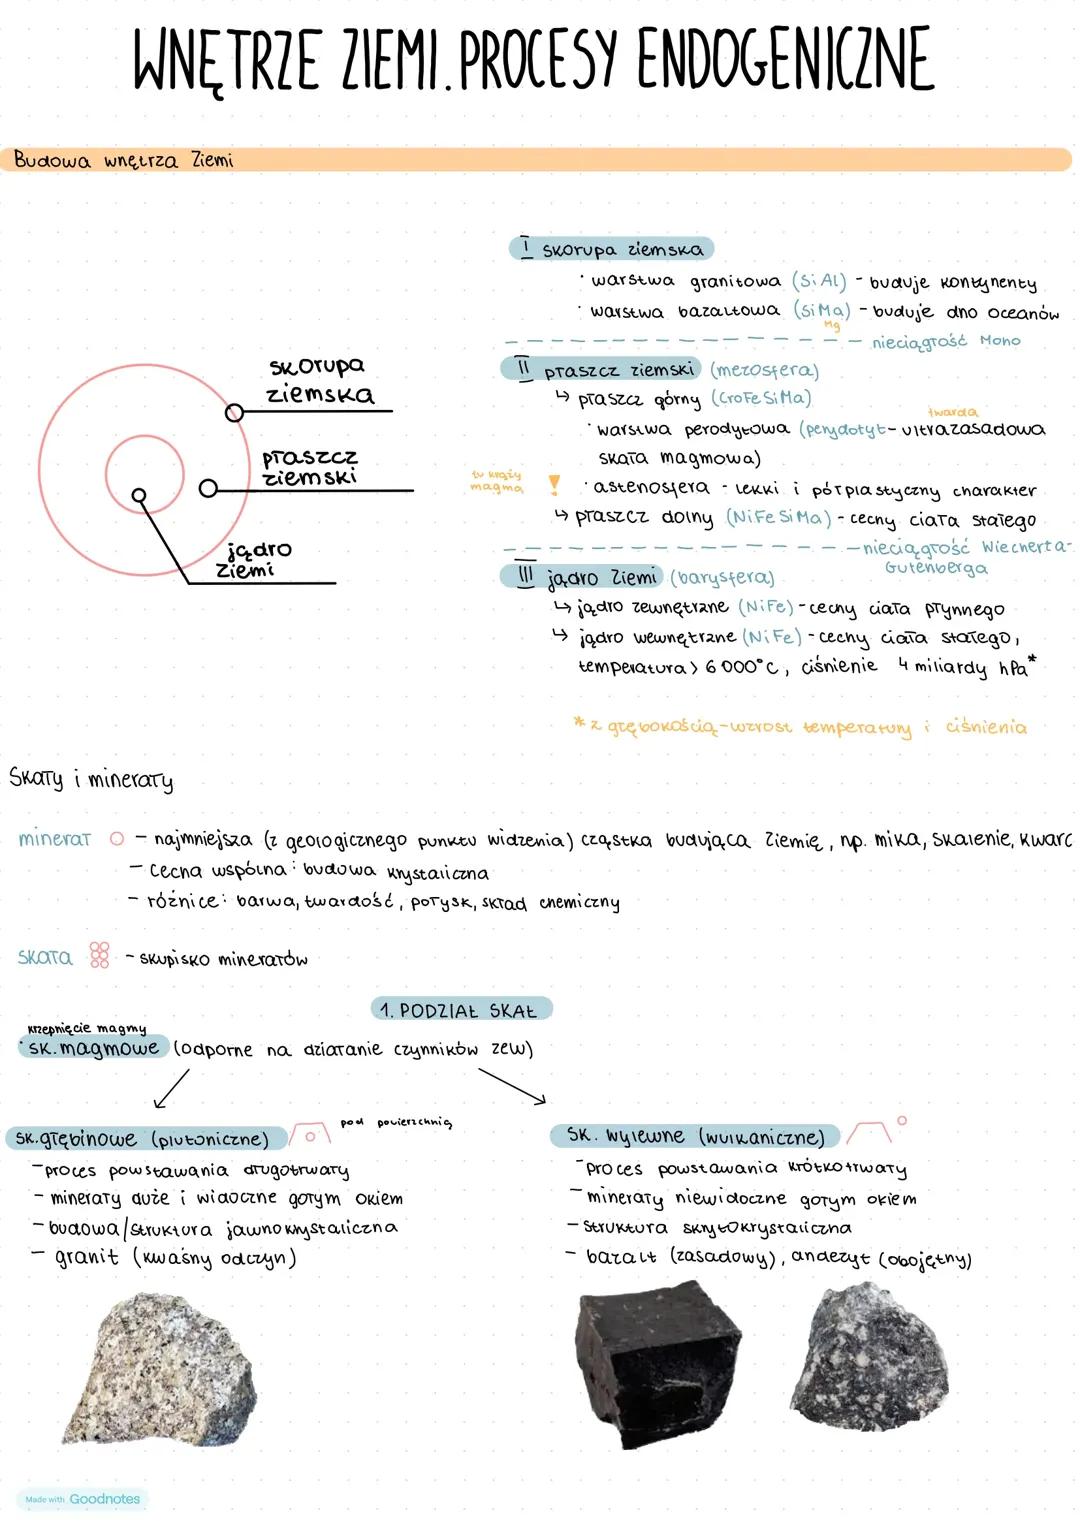 WNĘTRZE ZIEMI. PROCESY ENDOGENICZNE
Budowa wnętrza Ziemi
skorupa
ziemska
płaszcz
ziemski
jądro
Ziemi
I skorupa ziemska
· warstwa granitowa (SiAl) - buduje kontynenty
· warstwa bazaltowa (SiMa) - buduje dno oceanów
Mg
nieciągłość Moho
II płaszcz ziemski (mezosfera)
↳ płaszcz górny (CroFeSiMa)
twarda
· warstwa perodytowa (perydotyt - ultrazasadowa
skała magmowa)
tu krąży
magma
! · astenosfera - lekki i półplastyczny charakter
↳ płaszcz dolny (NiFeSiMa) - cechy ciała stałego
nieciągłość Wiecherta-
Gutenberga
III jądro Ziemi (barysfera)
↳ jądro zewnętrzne (NiFe) - cechy ciała płynnego
↳ jądro wewnętrzne (NiFe) - cechy ciała stałego,
temperatura > 6 000°C, ciśnienie 4 miliardy hPa*
* z głębokością - wzrost temperatury i ciśnienia
Skały i minerały
minerał - najmniejsza (z geologicznego punktu widzenia) cząstka budująca Ziemię, np. mika, skalenie, kwarc
- cecha wspólna: budowa krystaliczna
- różnice: barwa, twardość, połysk, skład chemiczny
skała - skupisko minerałów
1. PODZIAŁ SKAŁ
krzepnięcie magmy
· sk. magmowe (odporne na działanie czynników zew)
sk. głębinowe (plutoniczne)
pod powierzchnią
- proces powstawania długotrwały
- minerały duże i widoczne gołym okiem
- budowa/struktura jawnokrystaliczna
- granit (kwaśny odczyn)
sk. wylewne (wulkaniczne)
- proces powstawania krótkotrwały
- minerały niewidoczne gołym okiem
- struktura skrytokrystaliczna
- bazalt (zasadowy), andezyt (obojętny)
Made with Goodnotes